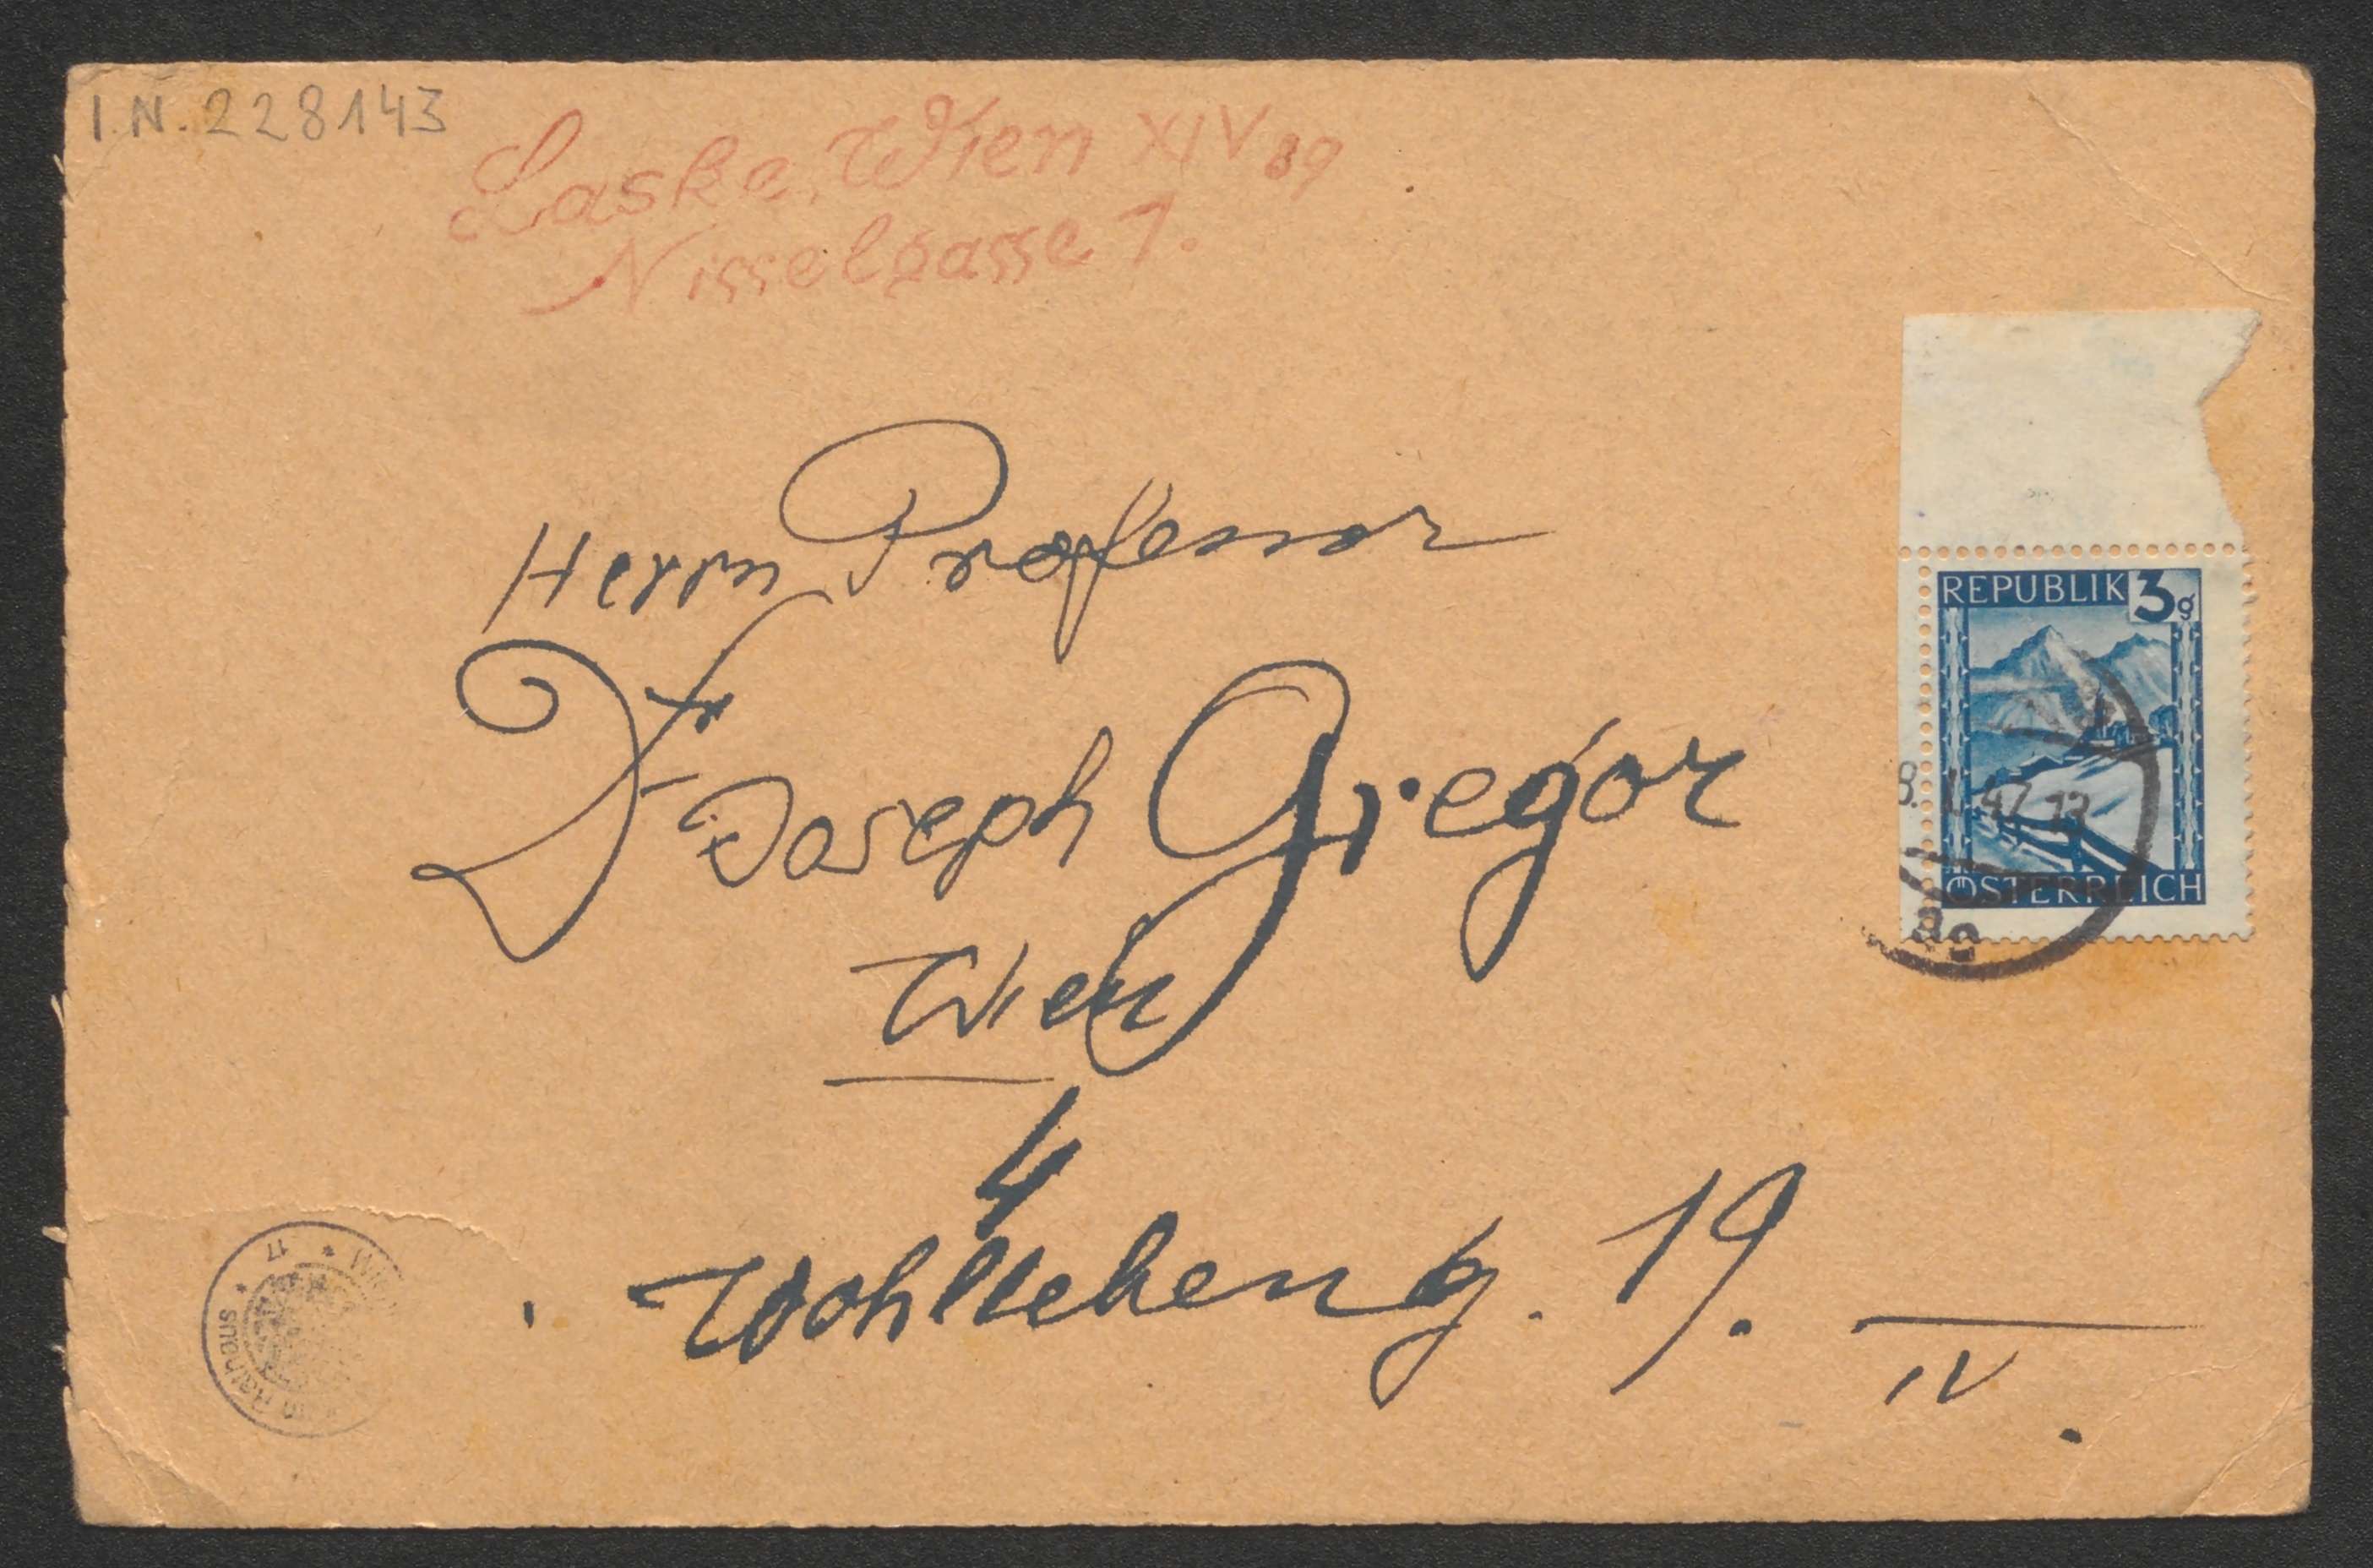 I.N. 228143
Laske, Wien XIV 89
Nisselgasse 1.
Herrn Professor
Dr Joseph Gregor
Wien
4
Wohllebeng. 19.
IV.
REPUBLIK 3g
8. I. 47 12
ÖSTERREICH
Rathaus